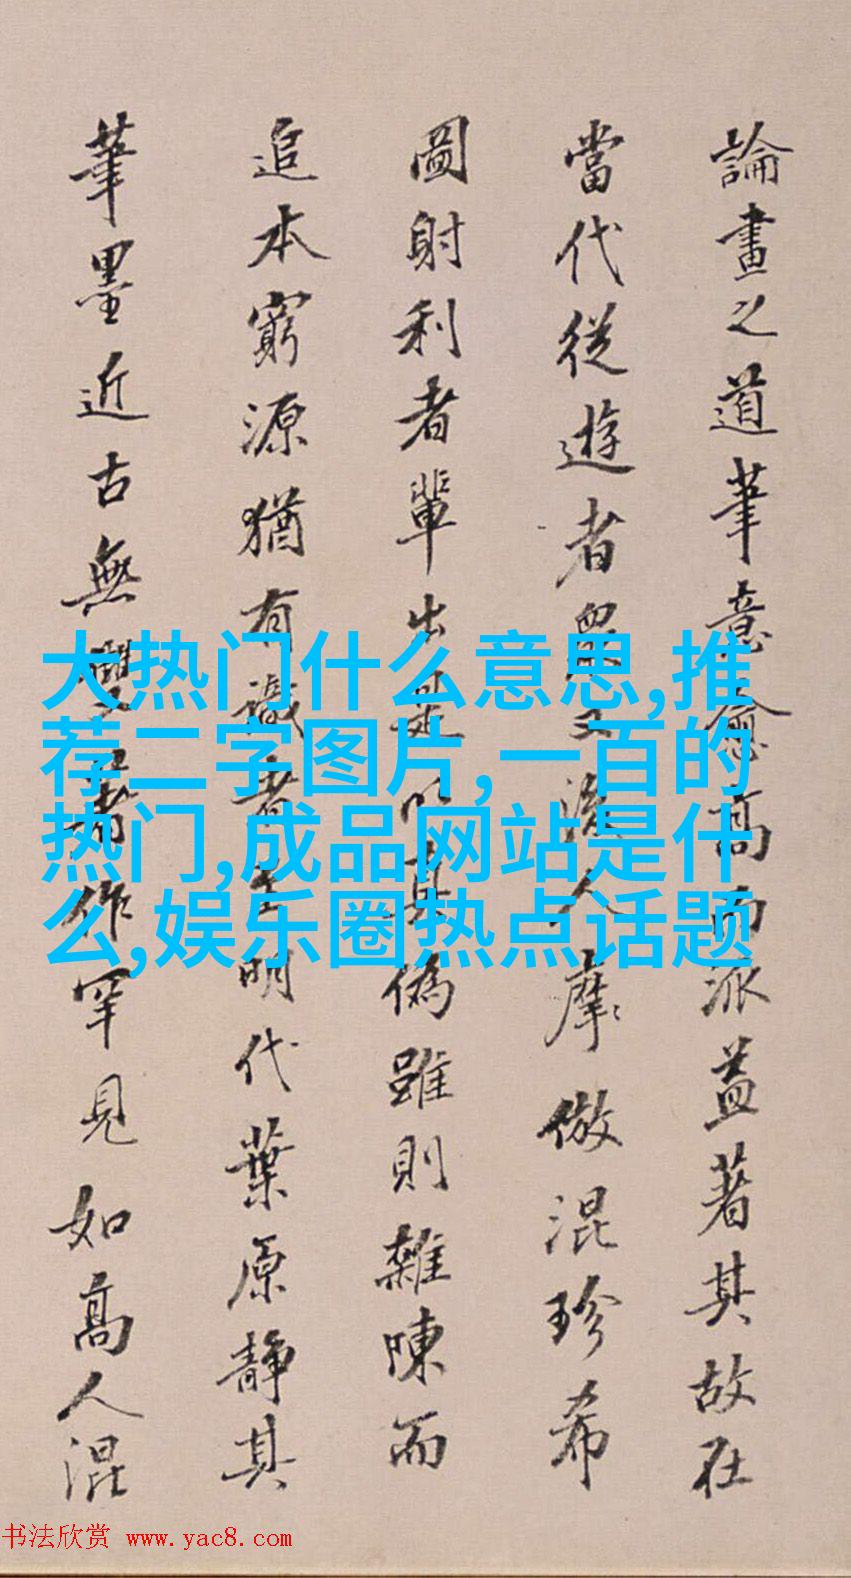 論畫之道筆意愈高而派益著其故在
當代從遊者眾又後人摩倣混珍希
圖射利者輩出是以真偽雖則雜陳而
追本窮源猶有識者在明代葉原靜其
筆墨近古無雙著作罕見如高人混
大热门什么意思,推
荐二字图片,一百的
热门,成品网站是什
么,娱乐圈热点话题
书法欣赏 www.yac8.com